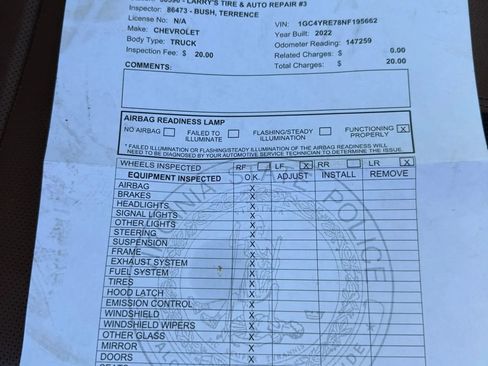 - LARRY'S TIRE & AUTO REPAIR #3
Inspector: 86473 - BUSH, TERRENCE
License No: N/A VIN: 1GC4YRE78NF195662
Make: CHEVROLET Year Built: 2022
Body Type: TRUCK Odometer Reading: 147259
Inspection Fee: $ 20.00 Related Charges: $ 0.00
Total Charges: $ 20.00
COMMENTS:
AIRBAG READINESS LAMP
NO AIRBAG FAILED TO ILLUMINATE FLASHING/STEADY ILLUMINATION FUNCTIONING PROPERLY X
* FAILED ILLUMINATION OR FLASHING/STEADY ILLUMINATION OF THE AIRBAG READINESS WILL
NEED TO BE DIAGNOSED BY YOUR AUTOMOTIVE SERVICE TECHNICIAN TO DETERMINE THE ISSUE.
WHEELS INSPECTED RF LF X RR LR X
EQUIPMENT INSPECTED O.K. ADJUST INSTALL REMOVE
AIRBAG X
BRAKES X
HEADLIGHTS X
SIGNAL LIGHTS X
OTHER LIGHTS X
STEERING X
SUSPENSION X
FRAME X
EXHAUST SYSTEM X
FUEL SYSTEM X
TIRES X
HOOD LATCH X
EMISSION CONTROL X
WINDSHIELD X
WINDSHIELD WIPERS X
OTHER GLASS X
MIRROR X
DOORS X